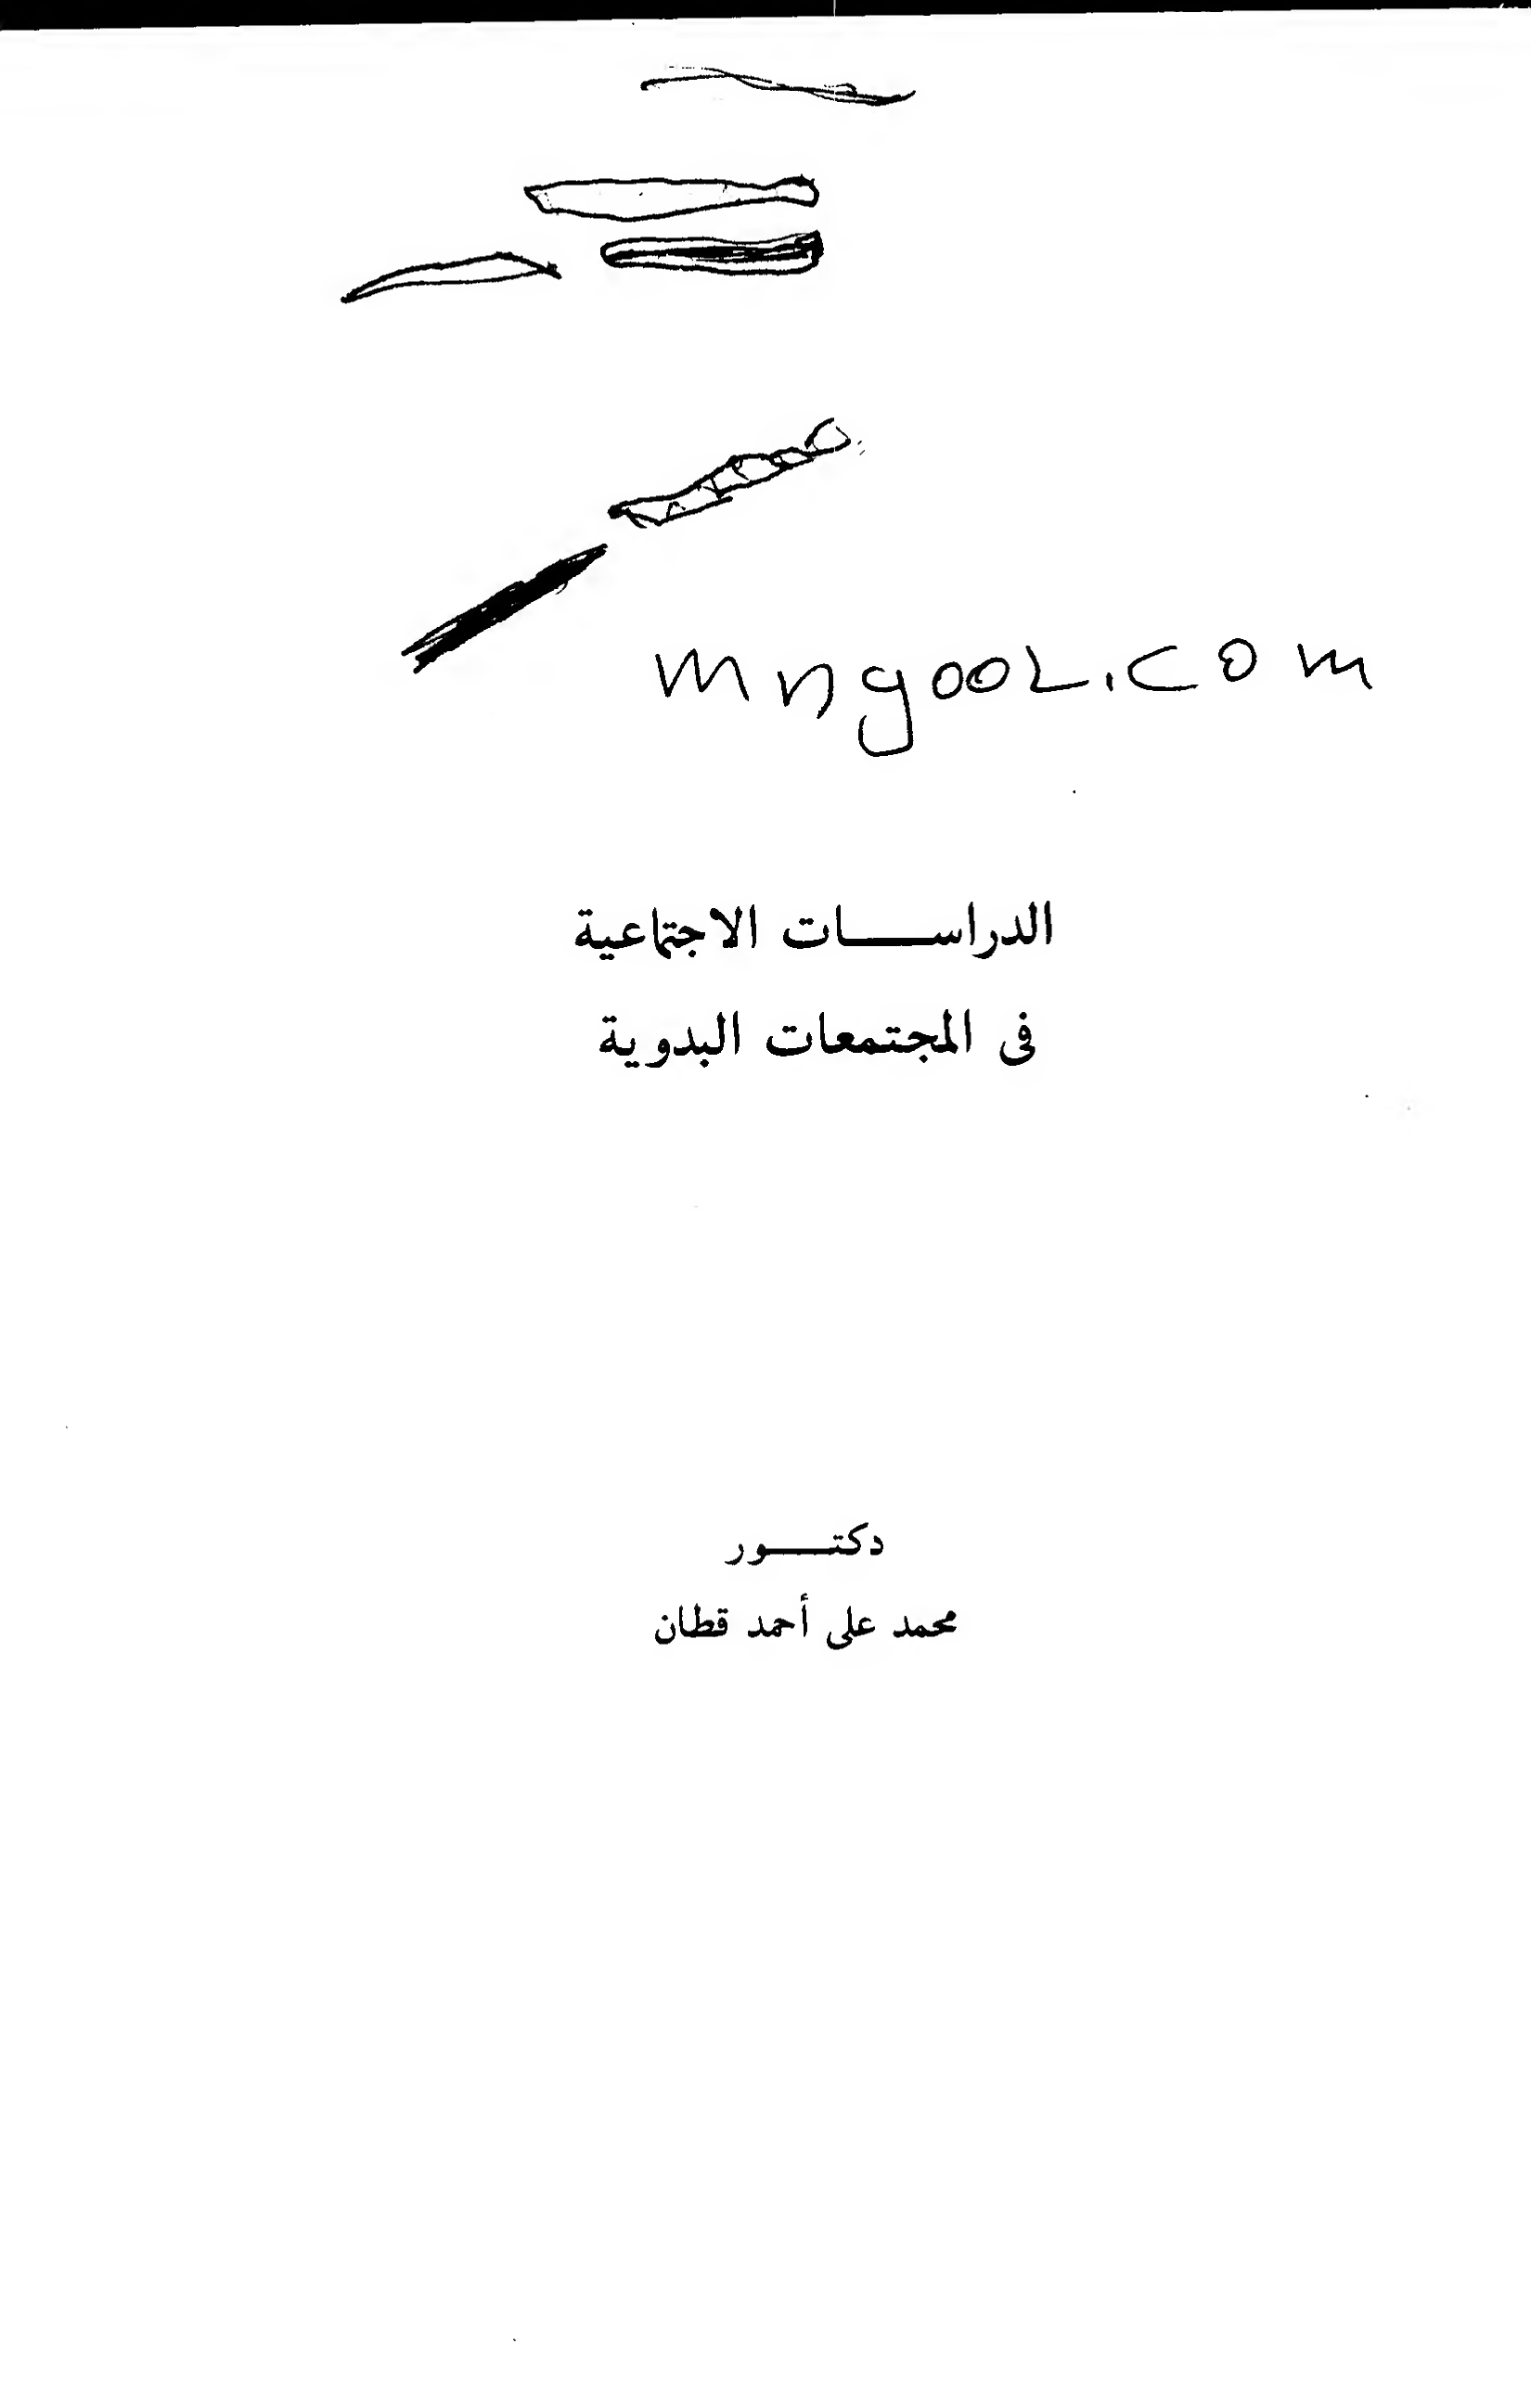 mngool.com
الدراسات الاجتماعية
فى المجتمعات البدوية
دكتور
محمد على أحمد قطان